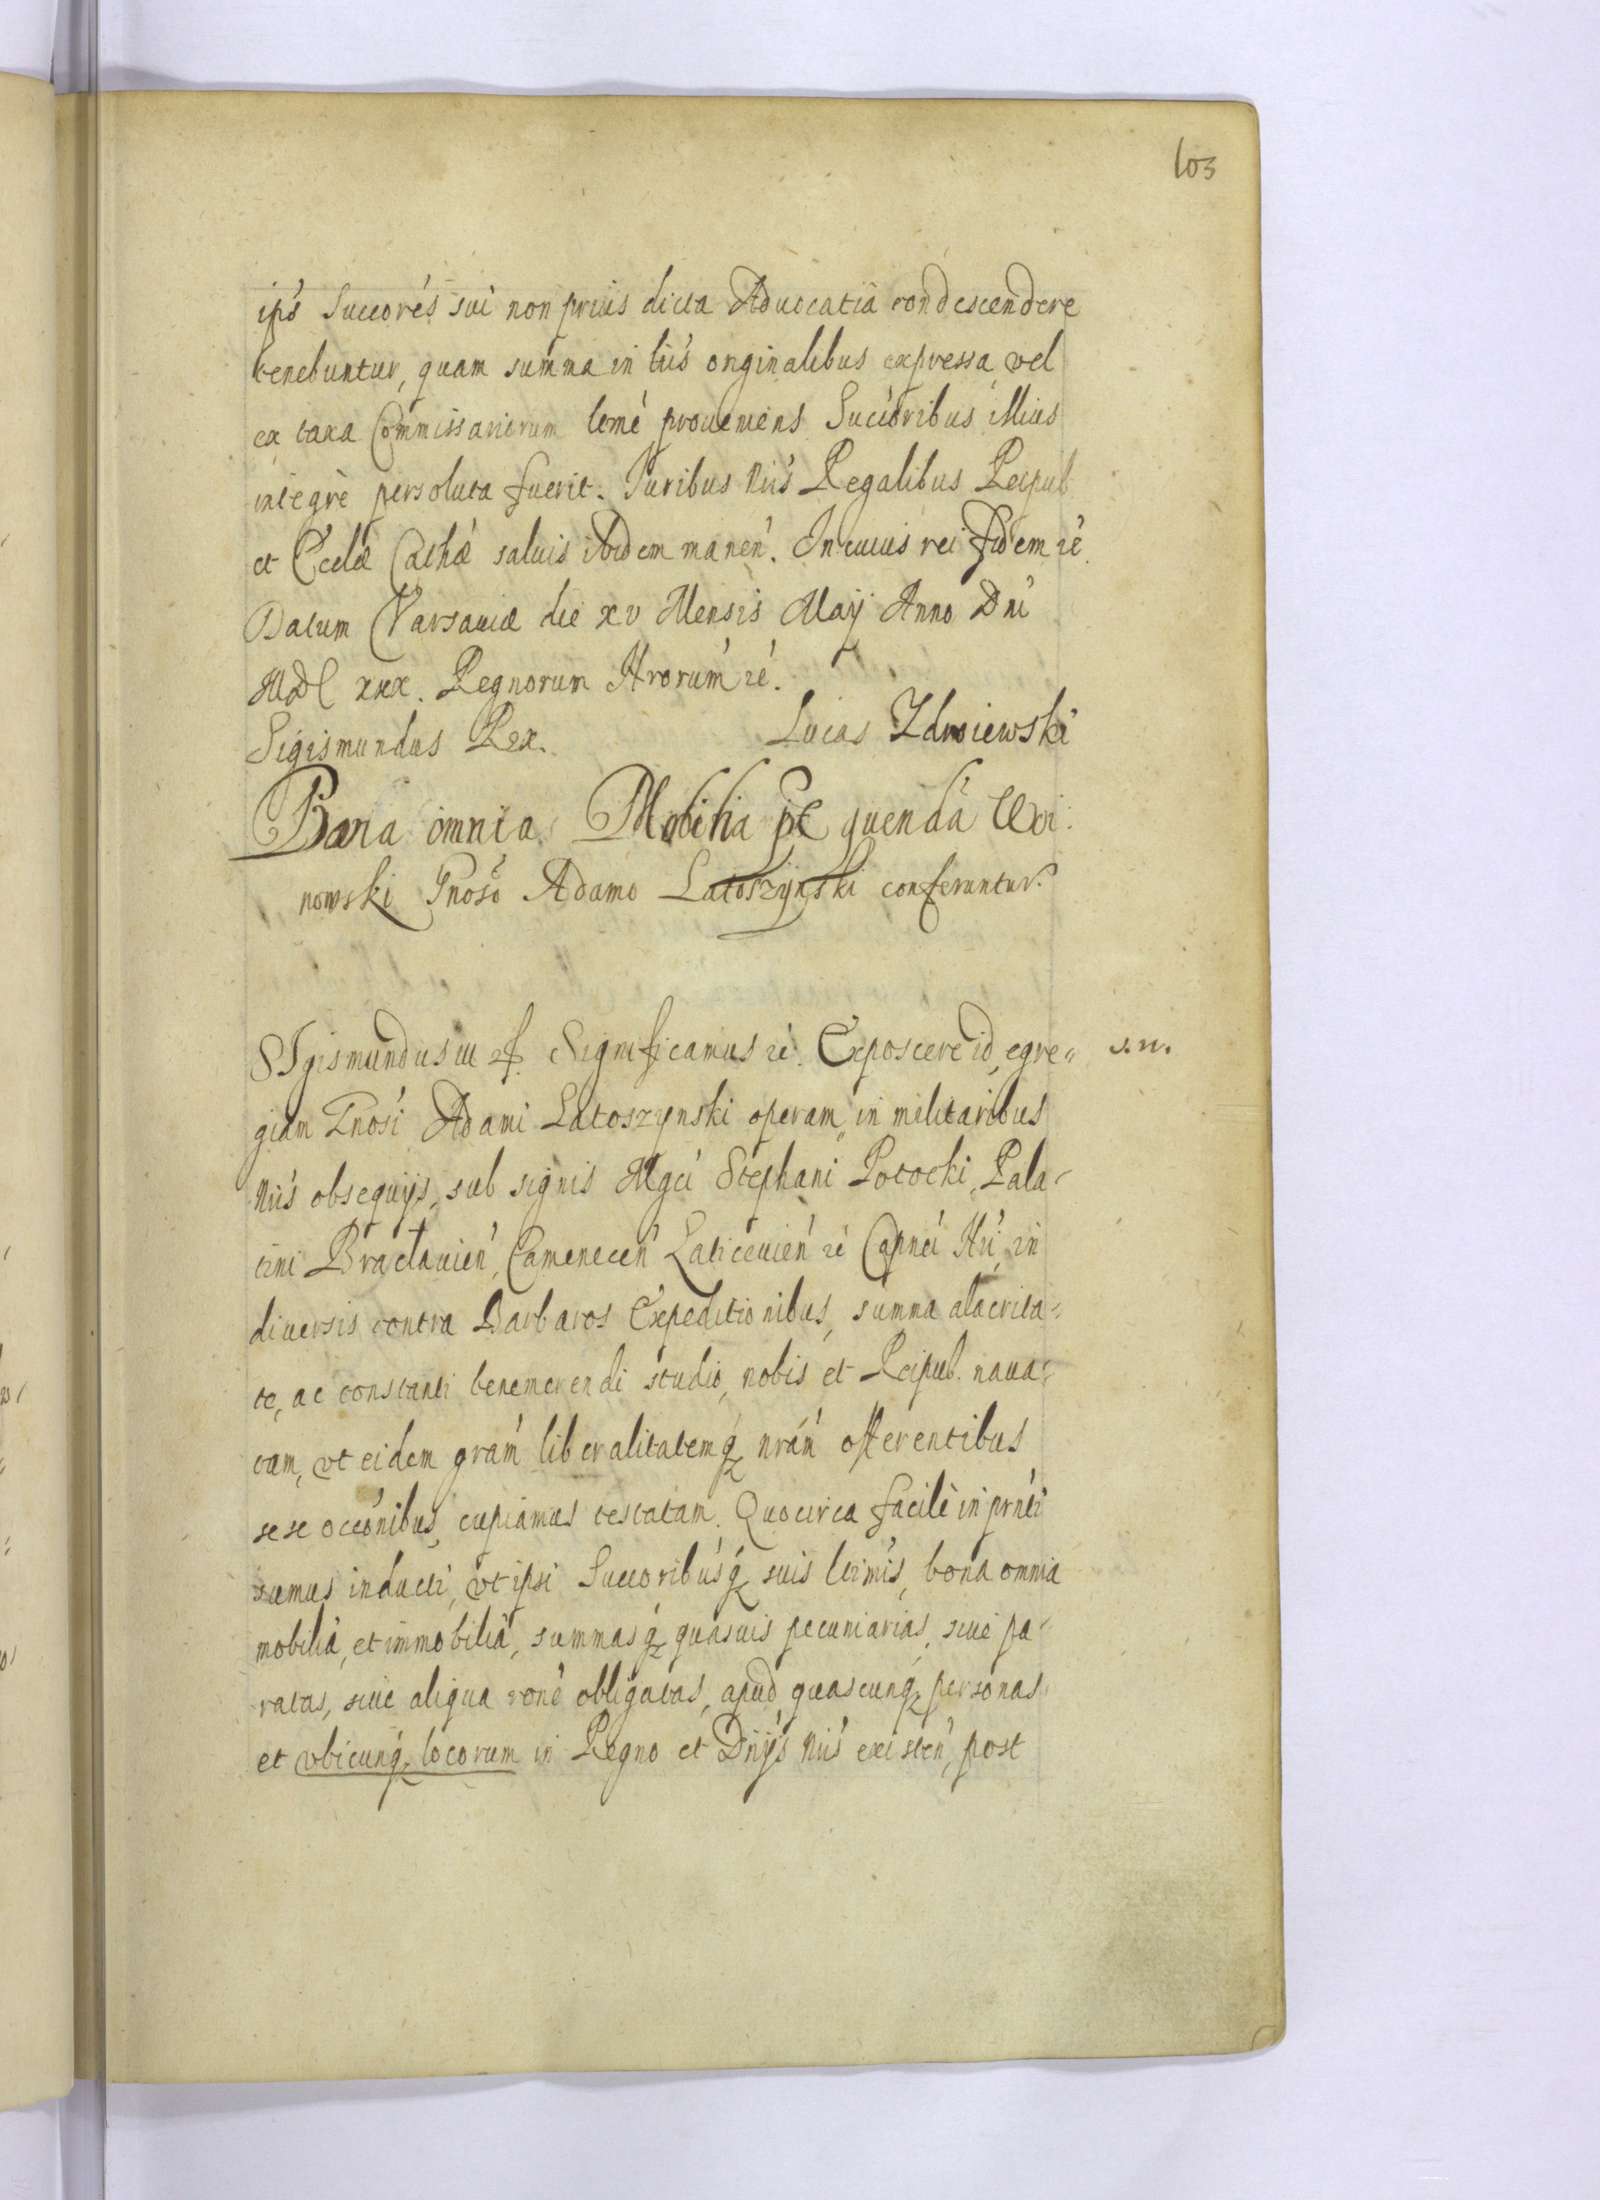 103
ips Succores sui non prius dicta Aduocatia condescendere
tenebuntur, quam summa in lris originalibus expressa, vel
ex taxa Commissariorum leme proueniens Succoribus illius
integrè persoluta fuerit. Iuribus nris Regalibus Reipub
et Eccłæ Cathæ saluis ibidem manen. In cuius rei fidem &c.
Datum Varsauiæ die XV Mensis Maij Anno Dni
MDCXXX. Regnorum Nrorum &c.
Sigismundus Rex. Lucas Zdroiewski
Bona omnia Mobilia p quendã Woi:
nowski Gnoso Adamo Latoszynski conferuntur.
SIgismundus III &. Significamus &c. Exposcere id, egre= s. n.
giam Gnosi Adami Latoszynski operam in militaribus
nris obsequijs, sub signis Mgci Stephani Potocki, Pala-
tini Braclauien, Camenecen Laticeuien &c Capnei Nri, in
diuersis contra Barbaros Expeditionibus, summa alacrita=
te, ac constanti benemerendi studio, nobis et Reipub. naua=
tam, vt eidem gram liberalitatemq nram offerentibus
sese occonibus, cupiamus testatam. Quocirca facilè in prnti
sumus inducti, vt ipsi Succoribusq suis ltimis, bona omnia
mobilia, et immobilia, summasq quasuis pecuniarias, siue pa-
ratas, siue aliqua rone obligatas, apud quascunq personas
et vbicunq locorum in Regno et Dnijs nris existen, post